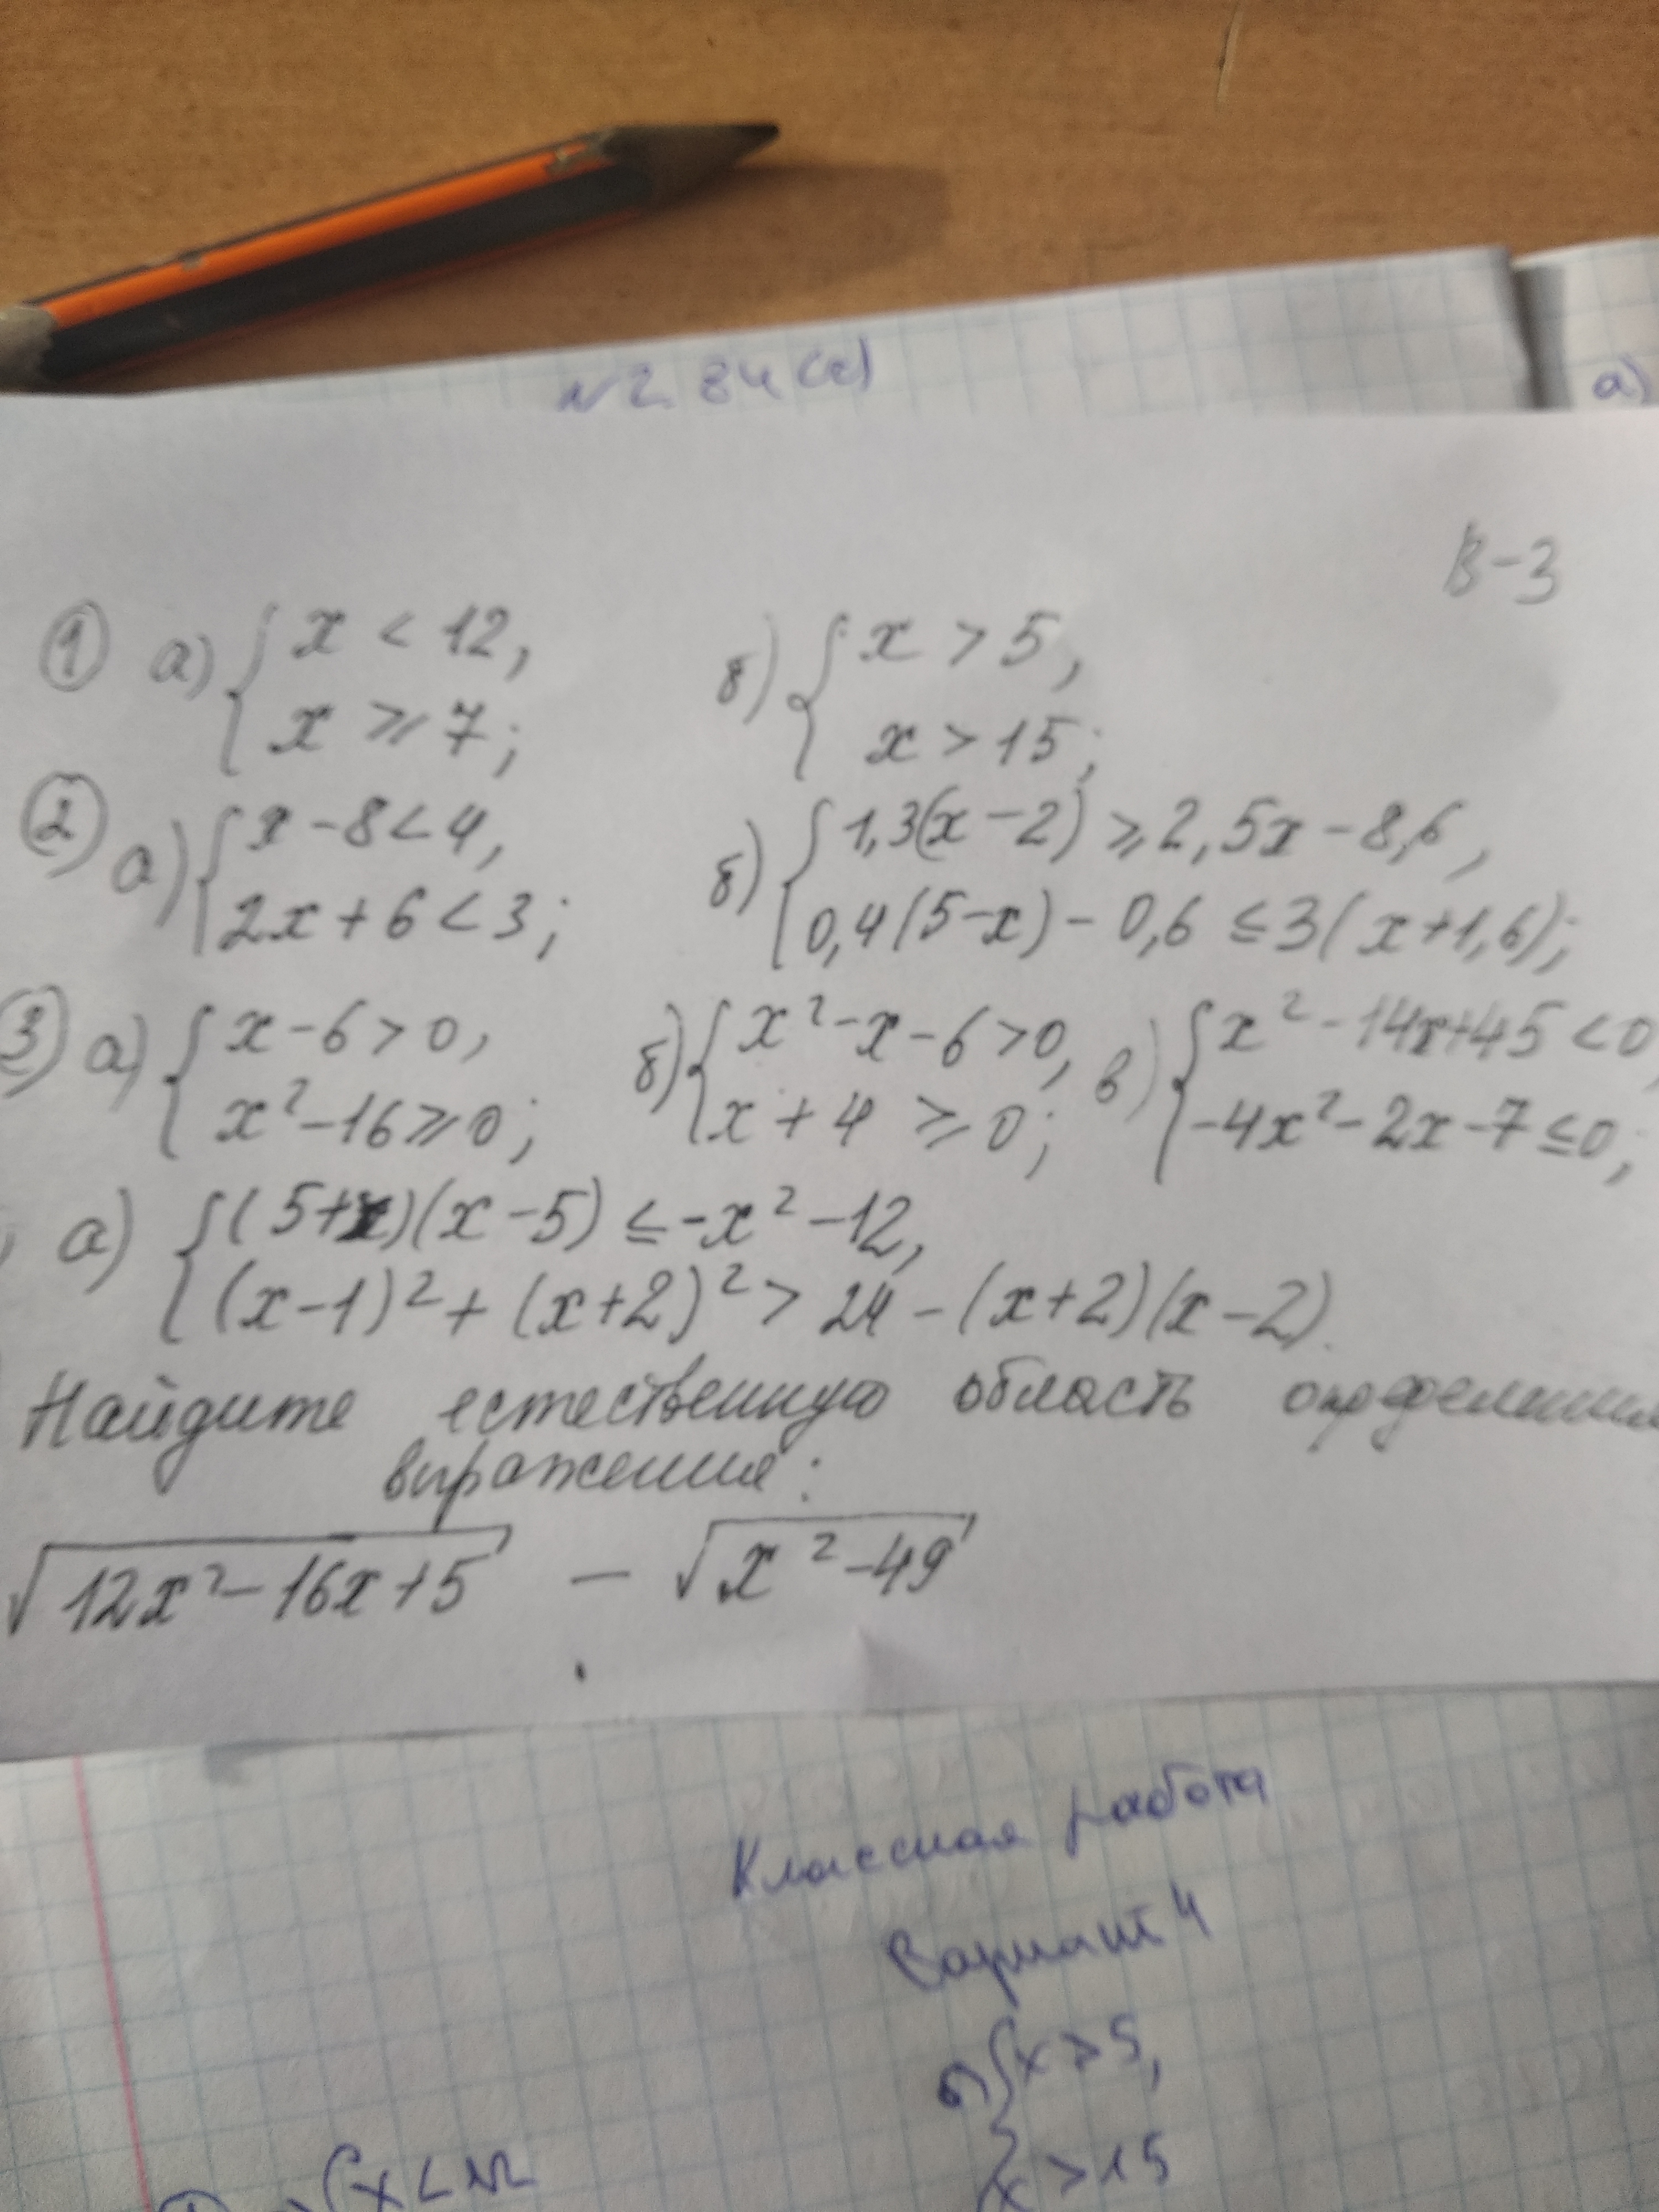 а)
В-3
① а) { x < 12, б) { x > 5,
x ⩾ 7; x > 15;
② а) { x - 8 < 4, б) { 1,3(x - 2) ⩾ 2,5x - 8,6,
2x + 6 < 3; 0,4(5 - x) - 0,6 ≤ 3(x + 1,6);
③ а) { x - 6 > 0, б) { x² - x - 6 > 0, в) { x² - 14x + 45 < 0,
x² - 16 ⩾ 0; x + 4 ⩾ 0; -4x² - 2x - 7 ≤ 0;
а) { (5+x)(x - 5) ≤ -x² - 12,
(x - 1)² + (x + 2)² > 24 - (x + 2)(x - 2).
Найдите естественную область определения
выражения:
√(12x² - 16x + 5) - √(x² - 49)
Классная работа
Вариант 4
{ x ⩾ 5,
x > 15
{ x < 12